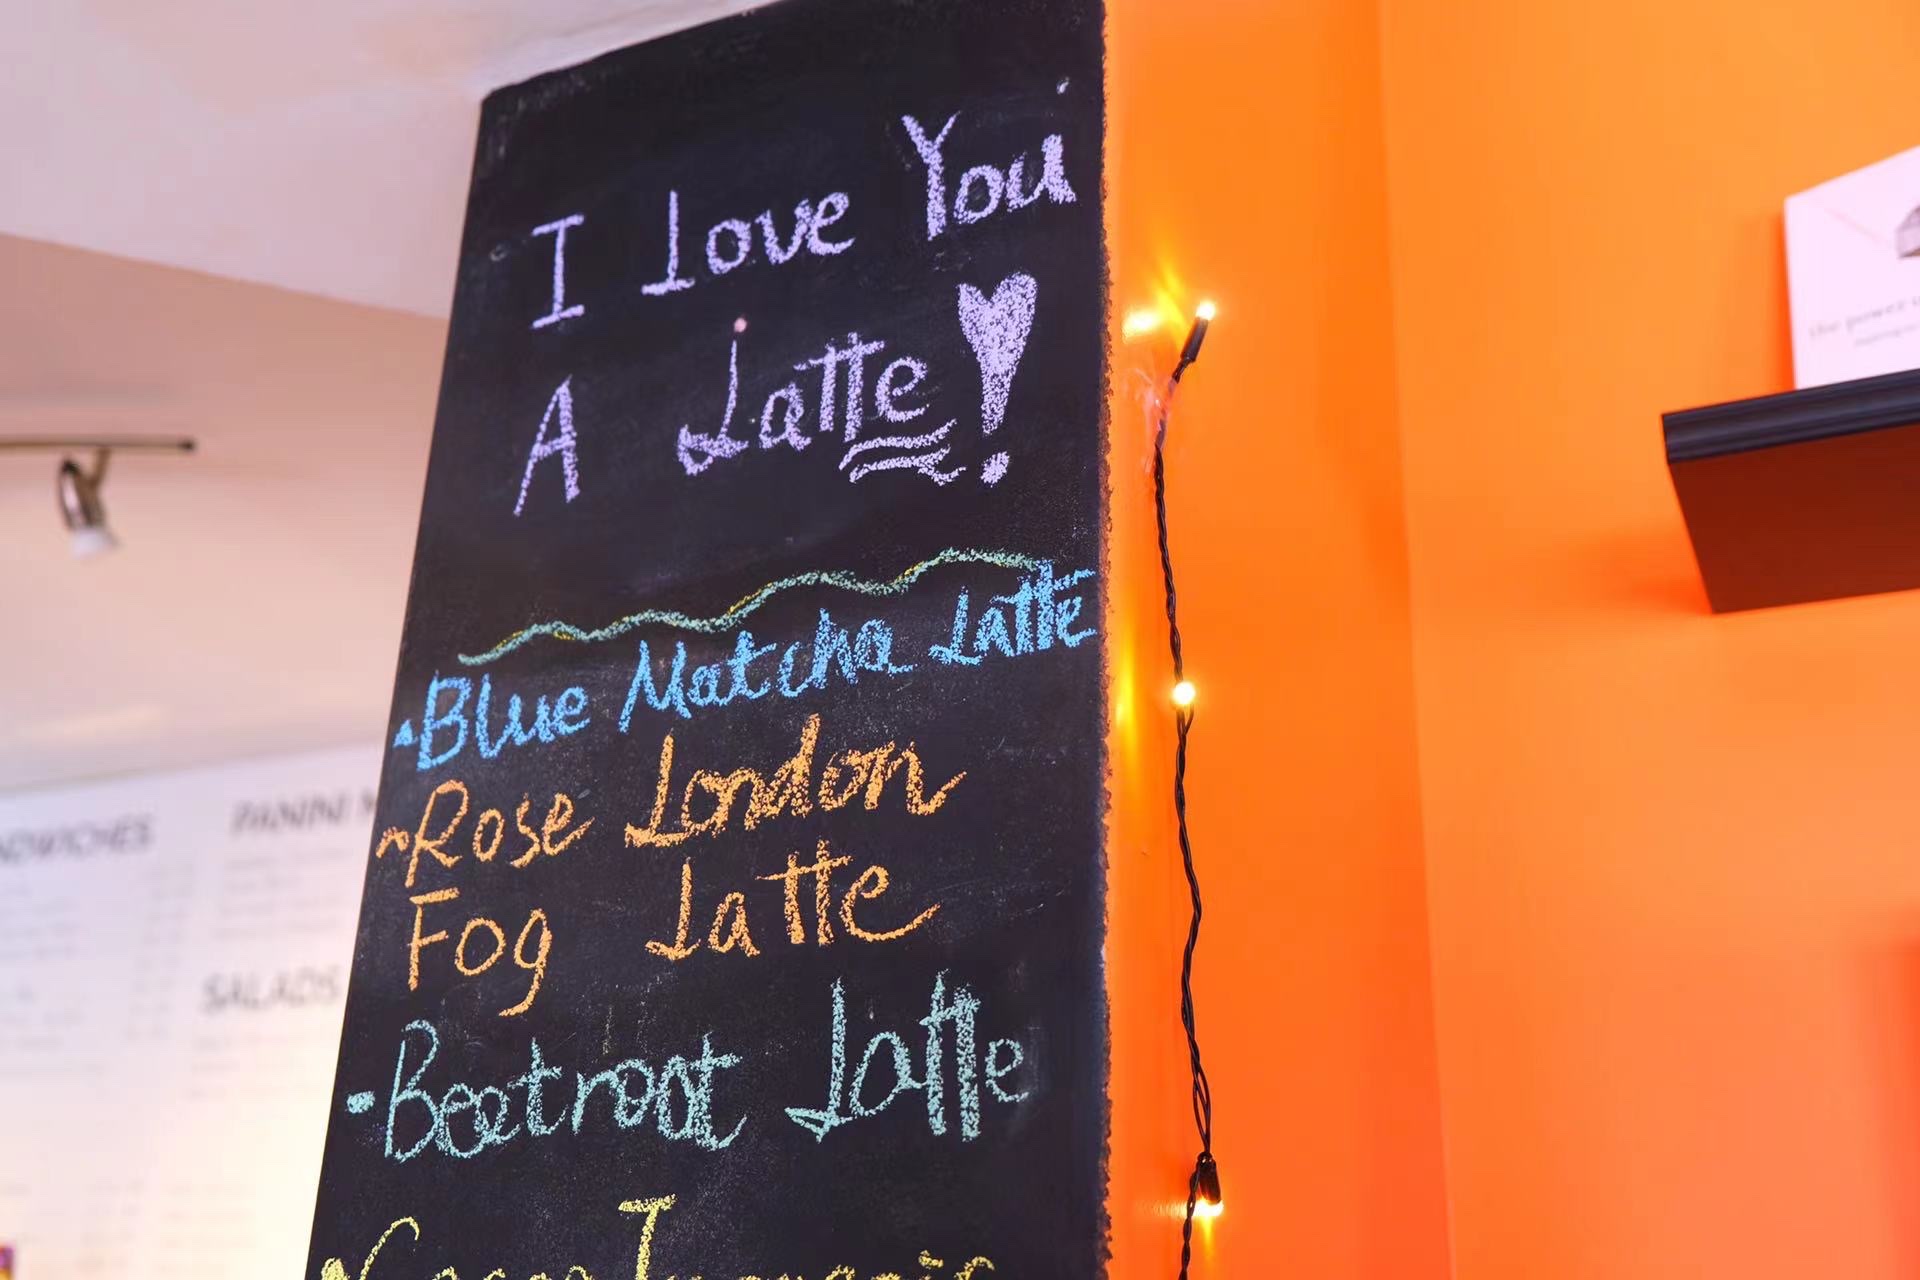 I Love You
A Latte!
Blue Matcha Latte
Rose London
Fog Latte
Beetroot Latte
PANINI
SALADS
the power